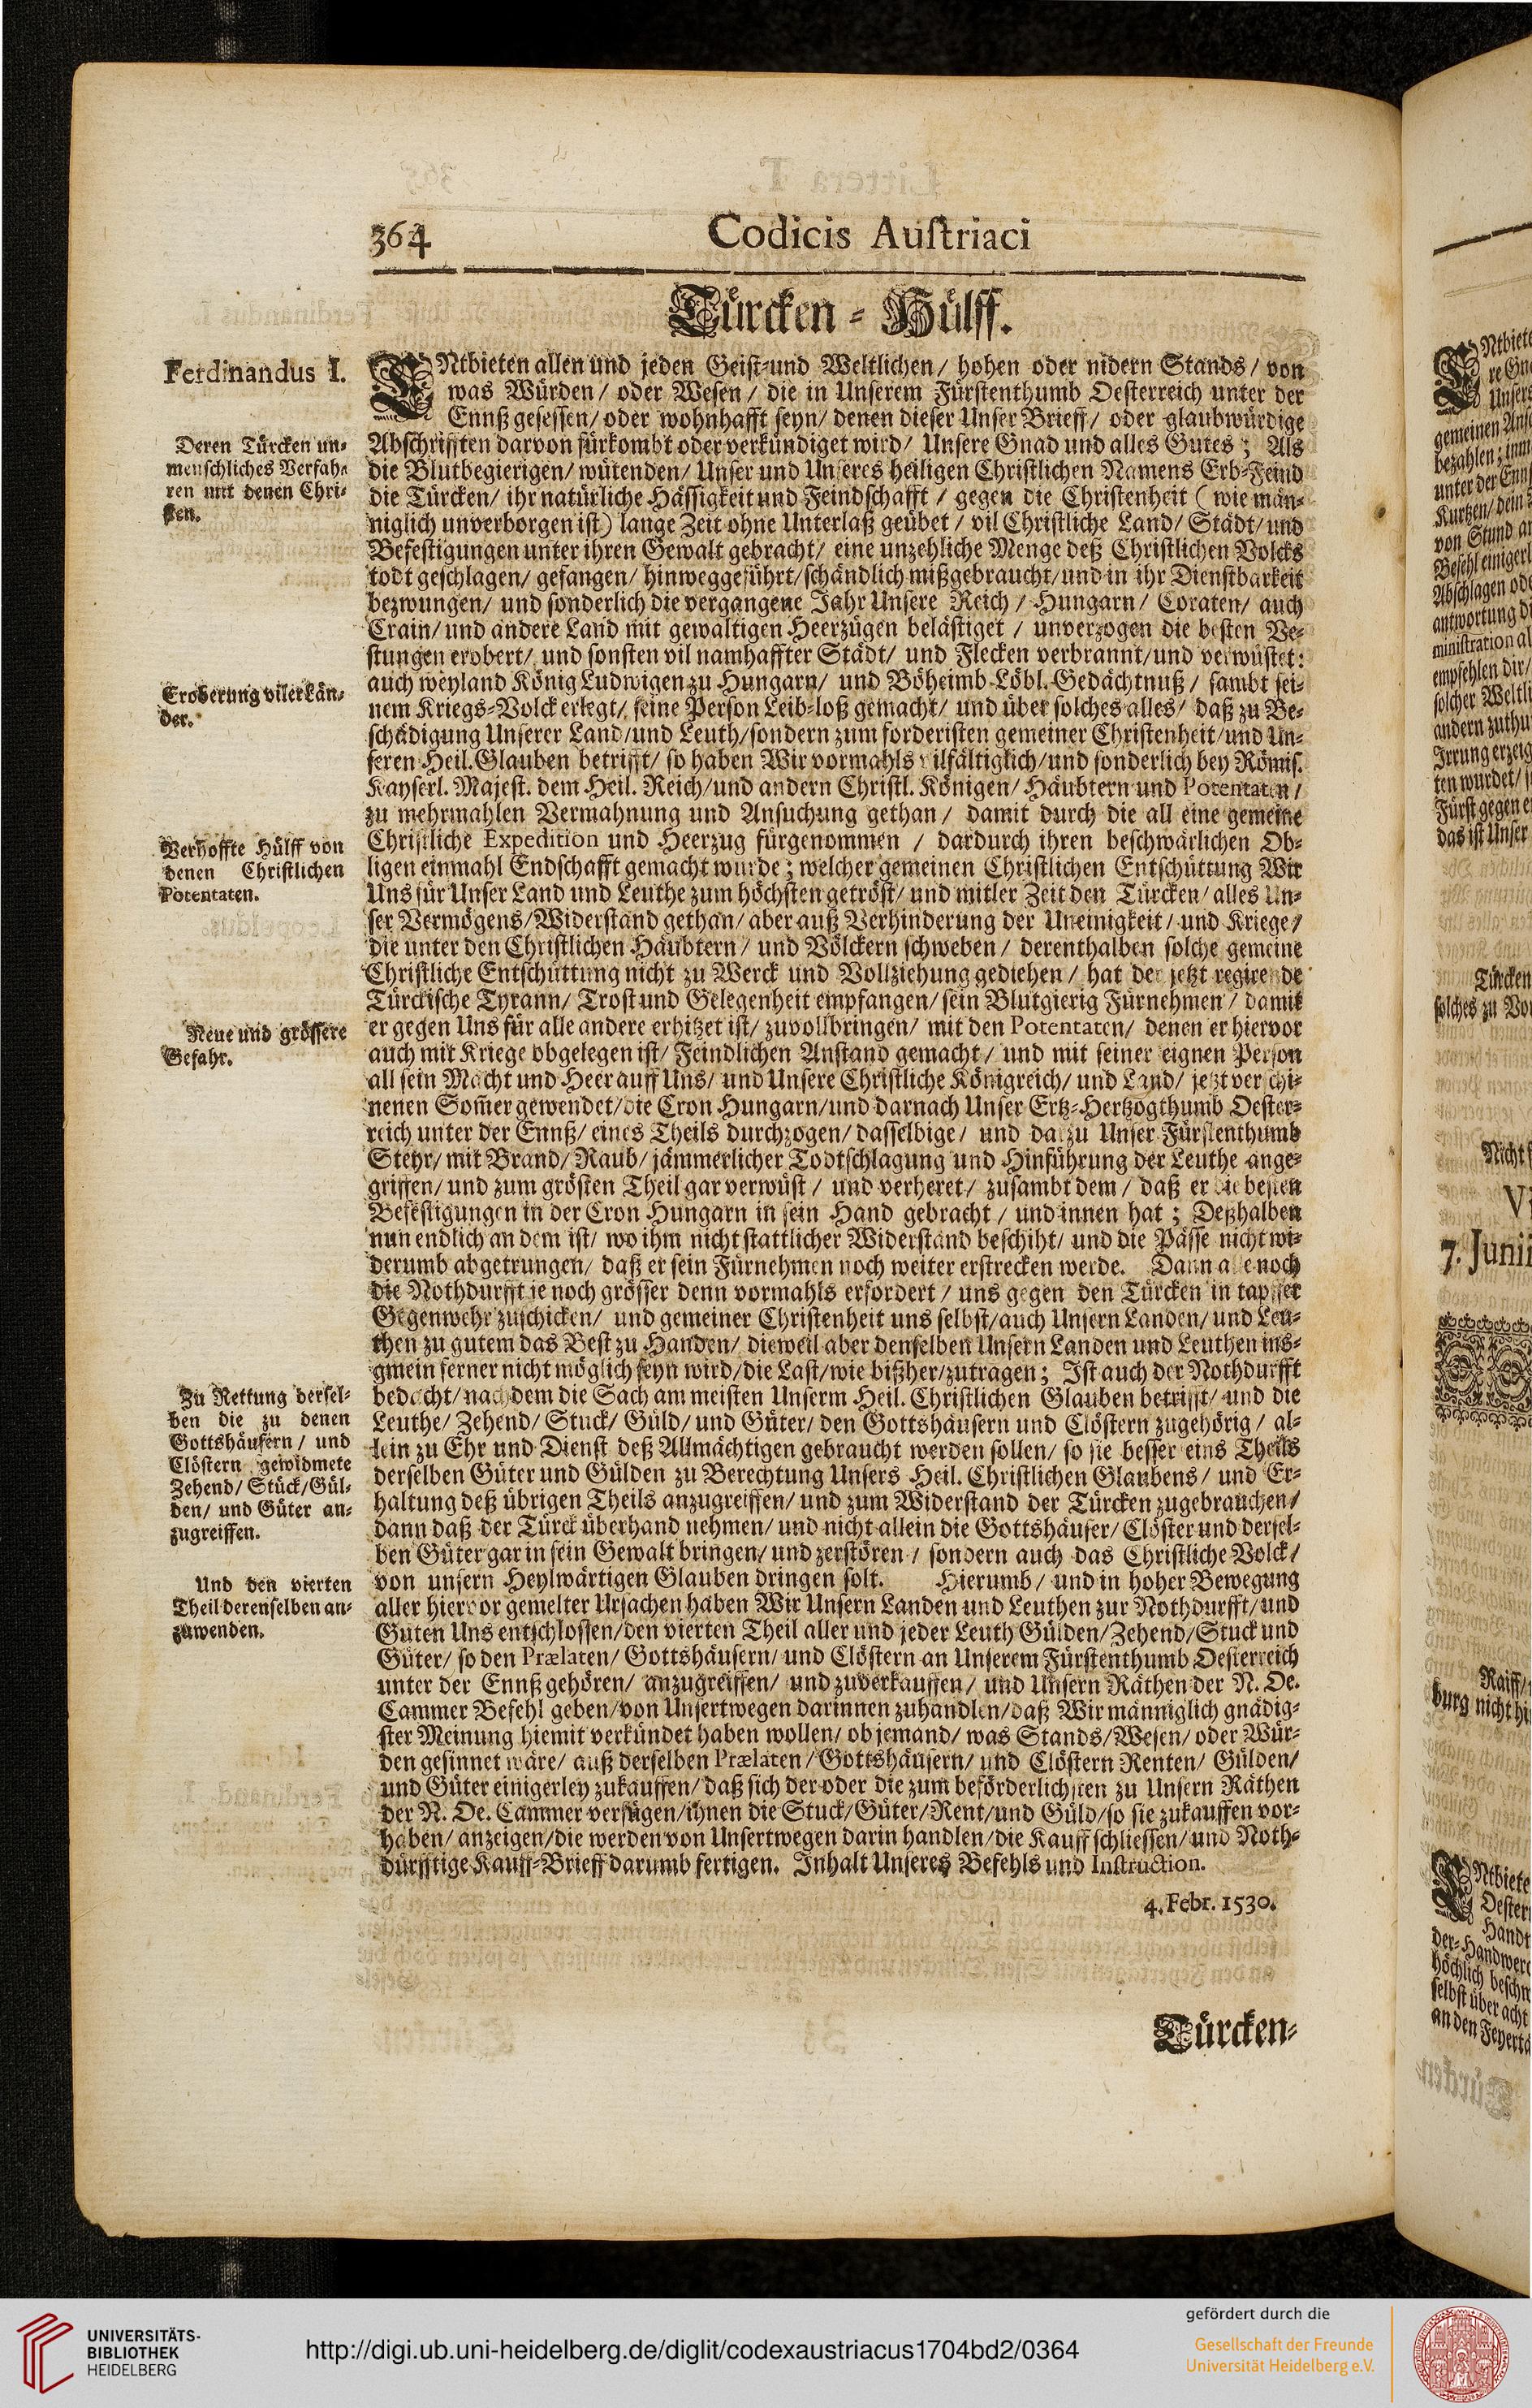 364 Codicis Austriaci
Türcken-Hülff.
Ferdinandus I.
ENtbieten allen und jeden Geist-und Weltlichen/ hohen oder nidern Stands/ von
was Würden/ oder Wesen/ die in Unserem Fürstenthumb Oesterreich unter der
Ennß gesessen/ oder wohnhafft seyn/ denen dieser Unser Brieff/ oder glaubwürdige
Deren Türcken un-
menschliches Verfah-
ren mit denen Chri-
sten.
Abschrifften darvon fürkombt oder verkündiget wird/ Unsere Gnad und alles Gutes; Als
die Blutbegierigen/ wütenden/ Unser und Unseres heiligen Christlichen Namens Erb-Feind
die Türcken/ ihr natürliche Hässigkeit und Feindschafft/ gegen die Christenheit (wie män-
niglich unverborgen ist) lange Zeit ohne Unterlaß geübet/ vil Christliche Land/ Städt/ und
Befestigungen unter ihren Gewalt gebracht/ eine unzehliche Menge deß Christlichen Volcks
todt geschlagen/ gefangen/ hinweggeführt/ schändlich mißgebraucht/ und in ihr Dienstbarkeit
bezwungen/ und sonderlich die vergangene Jahr Unsere Reich/ Hungarn/ Coraten/ auch
Crain/ und andere Land mit gewaltigen Heerzügen belästiget/ unverzogen die besten Ve-
stungen erobert/ und sonsten vil namhaffter Städt/ und Flecken verbrannt/ und verwüstet:
Eroberung viler Län-
der.
auch weyland König Ludwigen zu Hungarn/ und Böheimb Löbl. Gedächtnuß/ sambt sei-
nem Kriegs-Volck erlegt/ seine Person Leib-loß gemacht/ und über solches alles/ daß zu Be-
schädigung Unserer Land/ und Leuth/ sondern zum forderisten gemeiner Christenheit/ und Un-
seren Heil. Glauben betrifft/ so haben Wir vormahls vilfältiglich/ und sonderlich bey Römis.
Kayserl. Majest. dem Heil. Reich/ und andern Christl. Königen/ Häubtern und Potentaten/
zu mehrmahlen Vermahnung und Ansuchung gethan/ damit durch die all eine gemeine
Verhoffte Hülff von
denen Christlichen
Potentaten.
Christliche Expedition und Heerzug fürgenommen/ dardurch ihren beschwärlichen Ob-
ligen einmahl Endschafft gemacht wurde; welcher gemeinen Christlichen Entschüttung Wir
Uns für Unser Land und Leuthe zum höchsten getröst/ und mitler Zeit den Türcken/ alles Un-
ser Vermögens/ Widerstand gethan/ aber auß Verhinderung der Uneinigkeit/ und Kriege/
die unter den Christlichen Häubtern/ und Völckern schweben/ derenthalben solche gemeine
Christliche Entschüttung nicht zu Werck und Vollziehung gediehen/ hat der jetzt regirende
Türckische Tyrann/ Trost und Gelegenheit empfangen/ sein Blutgierig Fürnehmen/ damit
Neue und grössere
Gefahr.
er gegen Uns für alle andere erhitzet ist/ zuvollbringen/ mit den Potentaten/ denen er hiervor
auch mit Kriege obgelegen ist/ Feindlichen Anstand gemacht/ und mit seiner eignen Person
all sein Macht und Heer auff Uns/ und Unsere Christliche Königreich/ und Land/ jetzt verschi-
nenen Som̃er gewendet/ die Cron Hungarn/ und darnach Unser Ertz-Hertzogthumb Oester-
reich unter der Ennß/ eines Theils durchzogen/ dasselbige/ und darzu Unser Fürstenthumb
Steyr/ mit Brand/ Raub/ jämmerlicher Todtschlagung und Hinführung der Leuthe ange-
griffen/ und zum grösten Theil gar verwüst/ und verheret/ zusambt dem/ daß er die besten
Befestigungen in der Cron Hungarn in sein Hand gebracht/ und innen hat; Deßhalben
nun endlich an dem ist/ wo ihm nicht stattlicher Widerstand beschiht/ und die Pässe nicht wi-
derumb abgetrungen/ daß er sein Fürnehmen noch weiter erstrecken werde. Dann alle noch
die Nothdurfft je noch grösser denn vormahls erfordert/ uns gegen den Türcken in tapffer
Gegenwehr zuschicken/ und gemeiner Christenheit uns selbst/ auch Unsern Landen/ und Leu-
then zu gutem das Best zu Handen/ dieweil aber denselben Unsern Landen und Leuthen ins-
gmein ferner nicht möglich seyn wird/ die Last/ wie bißher/ zutragen; Ist auch der Nothdurfft
Zu Rettung dersel-
ben die zu denen
Gottshäusern/ und
Clöstern gewidmete
Zehend/ Stück/ Gül-
den/ und Güter an-
zugreiffen.
bedacht/ nachdem die Sach am meisten Unserm Heil. Christlichen Glauben betrifft/ und die
Leuthe/ Zehend/ Stuck/ Güld/ und Güter/ den Gottshäusern und Clöstern zugehörig/ al-
lein zu Ehr und Dienst deß Allmächtigen gebraucht werden sollen/ so sie besser eins Theils
derselben Güter und Gülden zu Berechtung Unsers Heil. Christlichen Glaubens/ und Er-
haltung deß übrigen Theils anzugreiffen/ und zum Widerstand der Türcken zugebrauchen/
dann daß der Türck überhand nehmen/ und nicht allein die Gottshäuser/ Clöster und dersel-
ben Güter gar in sein Gewalt bringen/ und zerstören/ sondern auch das Christliche Volck/
Und den vierten
Theil derenselben an-
zuwenden.
von unsern Heylwärtigen Glauben dringen solt. Hierumb/ und in hoher Bewegung
aller hiervor gemelter Ursachen haben Wir Unsern Landen und Leuthen zur Nothdurfft/ und
Guten Uns entschlossen/ den vierten Theil aller und jeder Leuth Gülden/ Zehend/ Stuck und
Güter/ so den Prælaten/ Gottshäusern/ und Clöstern an Unserem Fürstenthumb Oesterreich
unter der Ennß gehören/ anzugreiffen/ und zuverkauffen/ und Unsern Räthen der N. Oe.
Cammer Befehl geben/ von Unsertwegen darinnen zuhandlen/ daß Wir männiglich gnädig-
ster Meinung hiemit verkündet haben wollen/ ob jemand/ was Stands/ Wesen/ oder Wür-
den gesinnet wäre/ auß derselben Prælaten/ Gottshäusern/ und Clöstern Renten/ Gülden/
und Güter einigerley zukauffen/ daß sich der oder die zum beförderlichsten zu Unsern Räthen
der N. Oe. Cammer verfügen/ ihnen die Stuck/ Güter/ Rent/ und Güld/ so sie zukauffen vor-
haben/ anzeigen/ die werden von Unsertwegen darin handlen/ die Kauff schliessen/ und Noth-
dürfftige Kauff-Brieff darumb fertigen. Inhalt Unseres Befehls und Instruction.
4. Febr. 1530.
Türcken-
UNIVERSITÄTS-
BIBLIOTHEK
HEIDELBERG
http://digi.ub.uni-heidelberg.de/diglit/codexaustriacus1704bd2/0364
gefördert durch die
Gesellschaft der Freunde
Universität Heidelberg e.V.